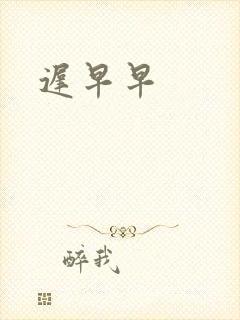 遲早早
醉我